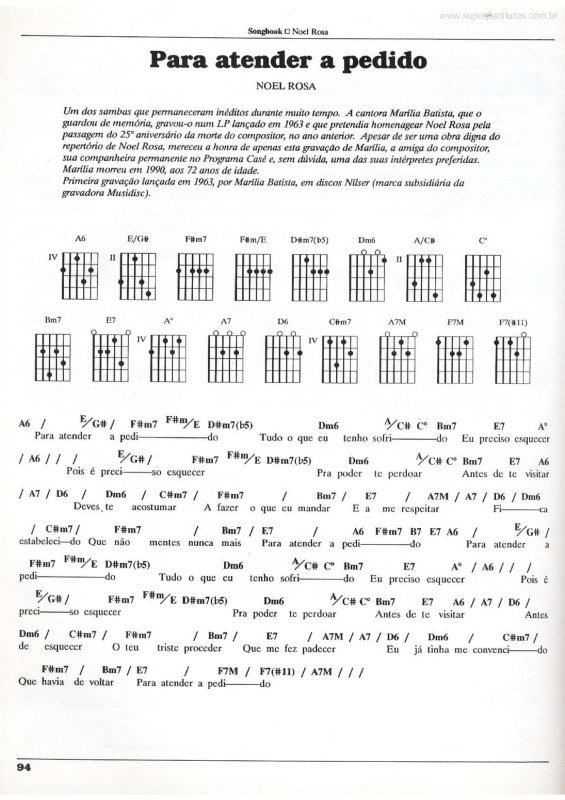 www.superpartituras.com.br
Songbook □ Noel Rosa
Para atender a pedido
NOEL ROSA
Um dos sambas que permaneceram inéditos durante muito tempo. A cantora Marília Batista, que o
guardou de memória, gravou-o num LP lançado em 1963 e que pretendia homenagear Noel Rosa pela
passagem do 25º aniversário da morte do compositor, no ano anterior. Apesar de ser uma obra digna do
repertório de Noel Rosa, mereceu a honra de apenas esta gravação de Marília, a amiga do compositor,
sua companheira permanente no Programa Casé e, sem dúvida, uma das suas intérpretes preferidas.
Marília morreu em 1990, aos 72 anos de idade.
Primeira gravação lançada em 1963, por Marília Batista, em discos Nilser (marca subsidiária da
gravadora Musidisc).
A6 E/G# F#m7 F#m/E D#m7(b5) Dm6 A/C# Cº
IV II II
Bm7 E7 Aº A7 D6 C#m7 A7M F7M F7(#11)
IV IV
A6 / E/G# / F#m7 F#m/E D#m7(b5) Dm6 A/C# Cº Bm7 E7 Aº
Para atender a pedi———do Tudo o que eu tenho sofri———do Eu preciso esquecer
/ A6 / / / E/G# / F#m7 F#m/E D#m7(b5) Dm6 A/C# Cº Bm7 E7 A6
Pois é preci———so esquecer Pra poder te perdoar Antes de te visitar
/ A7 / D6 / Dm6 / C#m7 / F#m7 / Bm7 / E7 / A7M / A7 / D6 / Dm6
Deves te acostumar A fazer o que eu mandar E a me respeitar Fi———ca
/ C#m7 / F#m7 / Bm7 / E7 / A6 F#m7 B7 E7 A6 / E/G# /
estabeleci—do Que não mentes nunca mais Para atender a pedi———do Para atender a
F#m7 F#m/E D#m7(b5) Dm6 A/C# Cº Bm7 E7 Aº / A6 / / /
pedi———do Tudo o que eu tenho sofri———do Eu preciso esquecer Pois é
E/G# / F#m7 F#m/E D#m7(b5) Dm6 A/C# Cº Bm7 E7 A6 / A7 / D6 /
preci———so esquecer Pra poder te perdoar Antes de te visitar Antes
Dm6 / C#m7 / F#m7 / Bm7 / E7 / A7M / A7 / D6 / Dm6 / C#m7 /
de esquecer O teu triste proceder Que me fez padecer Eu já tinha me convenci———do
F#m7 / Bm7 / E7 / F7M / F7(#11) / A7M / / /
Que havia de voltar Para atender a pedi———do
94